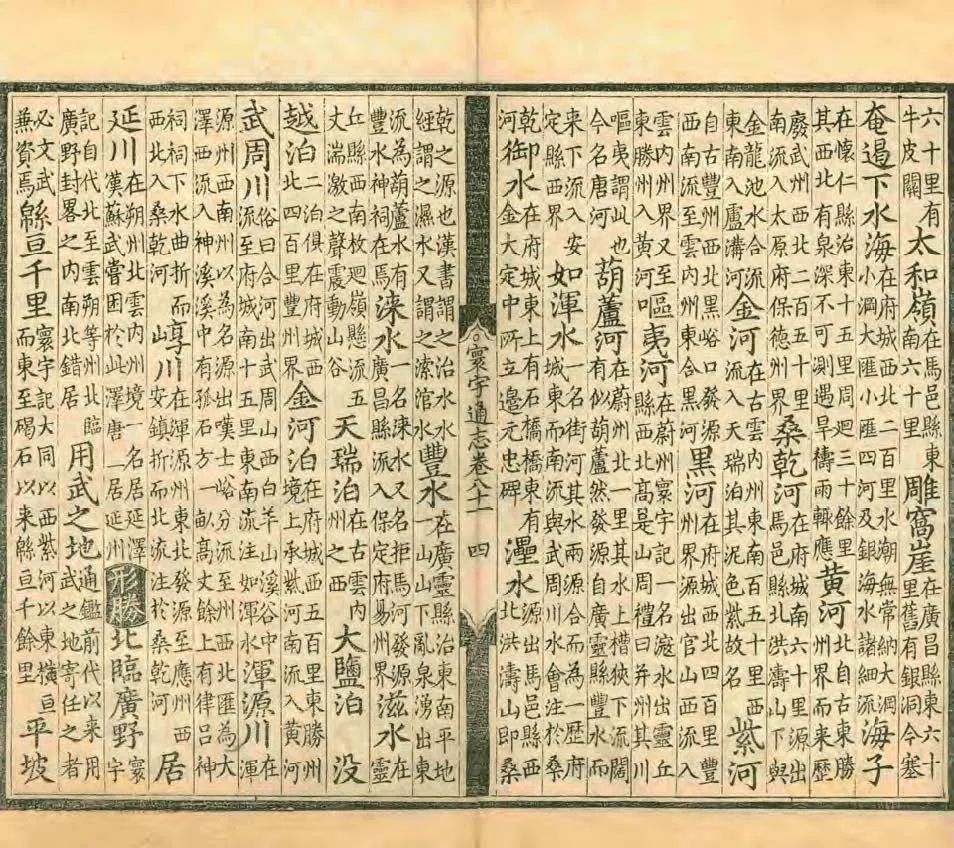 六十里有牛皮關太和嶺在馬邑縣東南六十里雕窩崖在廣昌縣東六十里舊有銀洞今塞
奄遏下水海在府城西北二百里水潮無常納大澗小澗大匯小匯四河及銀海水諸細流海子
在懷仁縣治東十五里周迴三十餘里其西北有泉深不可測遇旱禱雨輒應黄河北自古東勝州界而来歷
廢武州西北二百五十里南流入太原府保德州界桑乾河在府城南六十里源出馬邑縣北洪濤山下與
金龍池水合流東南入盧溝河金河在古雲内州東南百五十里西流入天瑞泊其泥色紫故名紫河
自古豐州西北黑峪口發源西南流至雲内州東合黒河黒河在府城西北四百里豐州界源出官山西流入
雲内州界又東勝州入黄河嘔夷河在蔚州寰宇記一名滱水出靈丘縣西北高是山周禮曰并州其川
嘔夷謂此也今名唐河葫蘆河在蔚州北一里其水上槽狹下流闊有似葫蘆然發源自廣靈縣豐水而
来下流入安定縣西界如渾水一名街河其水兩源合而為一歷府城東而南與武周川水會注於
乾河御水在府城東上有石橋橋東有金大定中所立邊元忠碑灅水源出馬邑縣西北洪濤山即桑
寰宇通志卷八十一 四
乾之源也漢書謂之治水水經謂之濕水又謂之漯涫水豐水在廣靈縣治東南平地一山山下亂泉湧出東
流為葫蘆水有豐水神祠在焉淶水一名淶水又名拒馬河發源廣昌縣流入保定府易州界滋水在靈
丘縣西南枚迴嶺懸流五丈湍激之聲震動山谷天瑞泊在古雲内州之西大鹽泊没
越泊二泊俱在府城西北四百里豐州界金河泊在府城西五百里東勝州境上承紫河南流入黄河
武周川俗曰合河出武周山西白羊山溪谷中流至府城南十五里東南流注如渾水渾源川在渾
源州西南州以為名源出嘆士峪分流至州西北匯為大澤西流入神溪溪中有孤石方一畝高丈餘上有律吕神
祠祠下水曲折而西北入桑乾河崞川在渾源州東北發源至應州西安鎮折而北流注於桑乾河居
延川在朔州北雲内州境一名居延澤唐居延州漢蘇武嘗困於此形勝北臨廣野寰宇
記自代北至雲朔等州北臨廣野封畧之内南北錯居用武之地通鑑前代以来用武之地寄任之者
必文武兼資焉緜亘千里寰宇記大同以西紫河以東横亘而東至碣石以来緜亘千餘里平坡